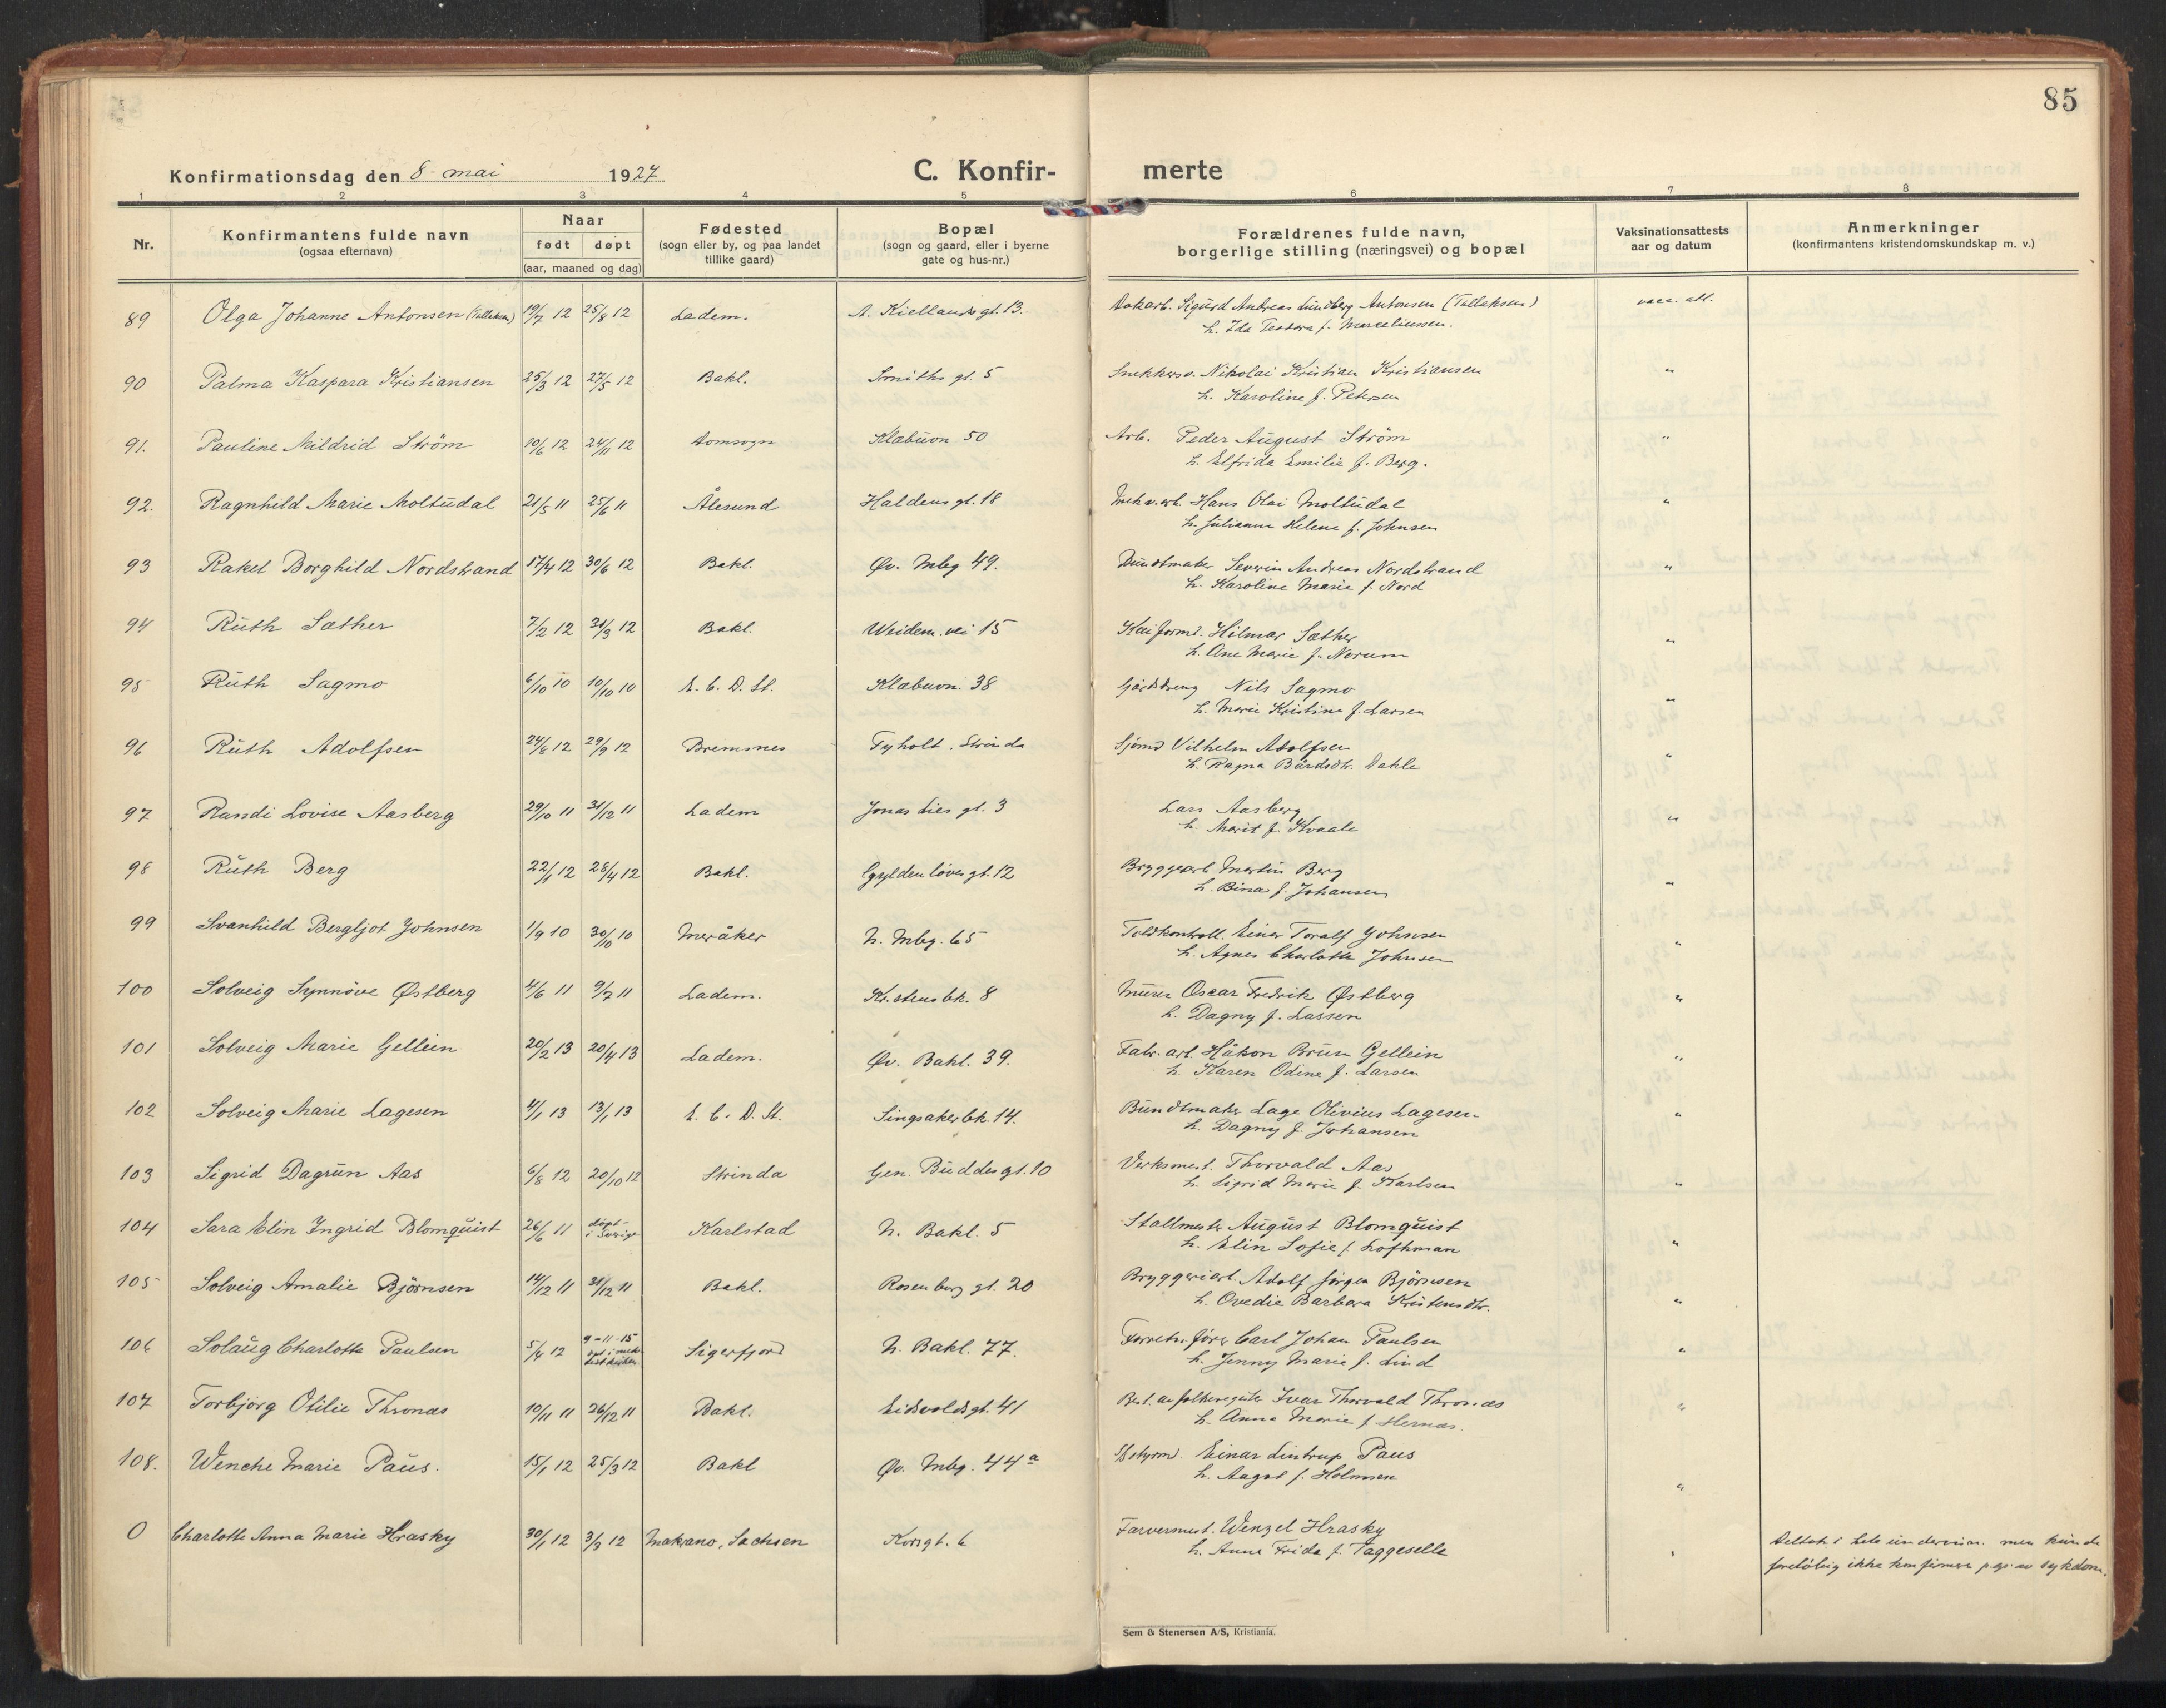 85
Konfirmationsdag den 8 mai 1927 C. Konfir- merte
1 2 3 4 5 6 7 8
Nr. Konfirmantens fulde navn (ogsaa efternavn) Naar født døpt (aar, maaned og dag) Fødested (sogn eller by, og paa landet tillike gaard) Bopæl (sogn og gaard, eller i byerne gate og hus-nr.) Forældrenes fulde navn, borgerlige stilling (næringsvei) og bopæl Vaksinationsattests aar og datum Anmerkninger (konfirmantens kristendomskundskap m. v.)
89 Olga Johanne Antonsen (Tallaksen) 19/7 12 25/8 12 Ladem. A. Kiellands gt. 13. Sigurd Andreas Lundberg Antonsen (Tallaksen) vacc. att.
h. Ida Teodora f. Marceliussen.
90 Palma Kaspara Kristiansen 25/3 12 27/5 12 Bakl. Smiths gt. 5 Snekkersv. Nikolai Kristian Kristiansen "
h. Karoline f. Petersen
91. Pauline Mildrid Ström 10/6 12 24/11 12 Domsogn Klæbuvn 50 Arb. Peder August Ström "
h. Elfrida Emilie f. Berg.
92. Ragnhild Marie Moltudal 21/5 11 25/6 11 Ålesund Haldens gt. 18 Mek.v.arb. Hans Olai Moltudal "
h. Julianne Helene f. Johnsen
93 Rakel Borghild Nordstrand 17/4 12 30/6 12 Bakl. Øv. Mbg 49. Bundtmaker Severin Andreas Nordstrand "
h. Karoline Marie f. Nord
94 Ruth Sæther 7/2 12 31/3 12 Bakl. Weidem. vei 15 Kaiformd. Hilmar Sæther "
h. Ane Marie f. Norum
95 Ruth Sagmo 6/10 10 10/10 10 E. C. D. St. Klæbuvn. 38 Gårdsdreng Nils Sagmo "
h. Marie Kristine f. Larsen
96 Ruth Adolfsen 24/8 12 29/9 12 Bremsnes Tyholt. Strinda Sjømd Vilhelm Adolfsen "
h. Ragna Bårdsdtr. Dahle
97 Randi Lovise Aasberg 29/10 11 31/12 11 Ladem Jonas Lies gt. 3 Lars Aasberg "
h. Marit f. Kvaale
98 Ruth Berg 22/1 12 28/4 12 Bakl. Gyldenløves gt. 12 Bryggearb Martin Berg "
h. Bina f. Johansen
99 Svanhild Bergljot Johnsen 1/9 10 30/10 10 Meråker N. Mbg. 65 Toldkontroll. Einar Toralf Johnsen "
h. Agnes Charlotte Johnsen
100 Solveig Synnöve Østberg 4/6 11 9/7 11 Ladem. Kr.stens bk. 8 Murer Oscar Fredrik Østberg "
h. Dagny f. Lassen
101 Solveig Marie Gellein 20/2 13 20/4 13 Ladem. Øv. Bakl. 39. Fabr. arb. Håkon Brun Gellein "
h. Karen Odine f. Larsen
102 Solveig Marie Lagesen 4/1 13 13/1 13 E. C. D. St. Singsaker bk. 14. Bundtmaker Lage Olivius Lagesen "
h. Dagny f. Johansen
103 Sigrid Dagrun Aas 6/8 12 20/10 12 Strinda Gen. Buddes gt. 10 Verksmest. Thorvald Aas "
h. Sigrid Marie f. Karlsen
104 Sara Elin Ingrid Blomquist 26/6 11 døpt i Sverige Karlstad N. Bakl. 5 Stallmester August Blomquist "
h. Elin Sofie f. Lofthman
105 Solveig Amalie Björnsen 14/12 11 31/12 11 Bakl. Rosenborg gt. 20 Bryggeriarb. Adolf Jörgen Björnsen "
h. Ovedie Barbara Kristensdtr.
106 Solaug Charlotte Paulsen 5/4 12 9-11-15 Sigerfjord N. Bakl. 77. Forretn.fører Carl Johan Paulsen "
h. Jenny Marie f. Lind
107 Torbjørg Otilie Thronæs 10/11 11 26/12 11 Bakl. Eidsvolds gt. 41 Best. av folkeregister Ivar Thorvald Thronæs "
h. Anna Marie f. Hernæs
108. Wenche Marie Paus. 15/1 12 25/3 12 Bakl Øv. Mbg. 44a Einar Lintrup Paus "
h. Aagot f. Holmsen
0 Charlotte Anna Marie Hrasky 30/1 12 3/3 12 Sachsen Korsgt. 6 Farvermest. Wenzel Hrasky " Deltok i hele undervisn. men kunde
h. Anna Frida f. Taggeselle foreløbig ikke konfirmeres p.gr. av sykdom.
Sem & Stenersen A/S, Kristiania.